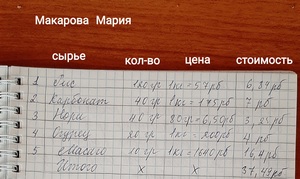 Макарова Мария
сырье кол-во цена стоимость
1 Рис 120гр 1кг=57рб 6,84рб
2 Карбонат 40гр 1кг=175рб 7рб
3 Нори 40гр 80гр=6,50рб 3,25рб
4 Огурец 20гр 1кг=200рб 4рб
5 Масаго 10гр 1кг=1640рб 16,4рб
Итого х х 37,49рб